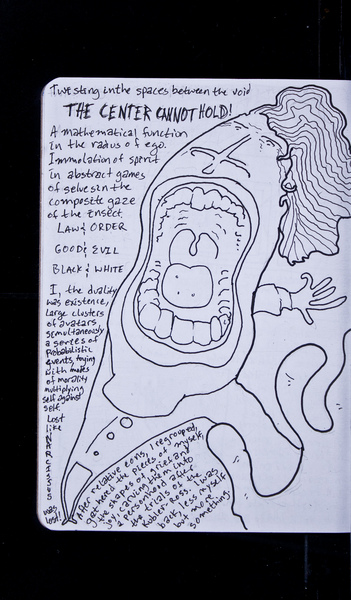 Twisting in the spaces between the void
THE CENTER CANNOT HOLD!
A mathematical function
in the radius of ego.
Immolation of spirit
in abstract games
of selves in the
composite gaze
of the insect.
LAW & ORDER
GOOD & EVIL
BLACK & WHITE
I, the duality
was existence,
Large clusters
of avatars
simultaneously
a series of
Probabilistic
events, toying
with modes
of morality
multiplying
self against
self.
Lost
like
NARCISSUS
was
Lost!
After relative eons, I regrouped,
gathered the pieces of myself,
the shapes of grief and
joy, carving them into
a personhood after
the trials of the
Kubler-Ross. I was
back, less myself
but more
something.